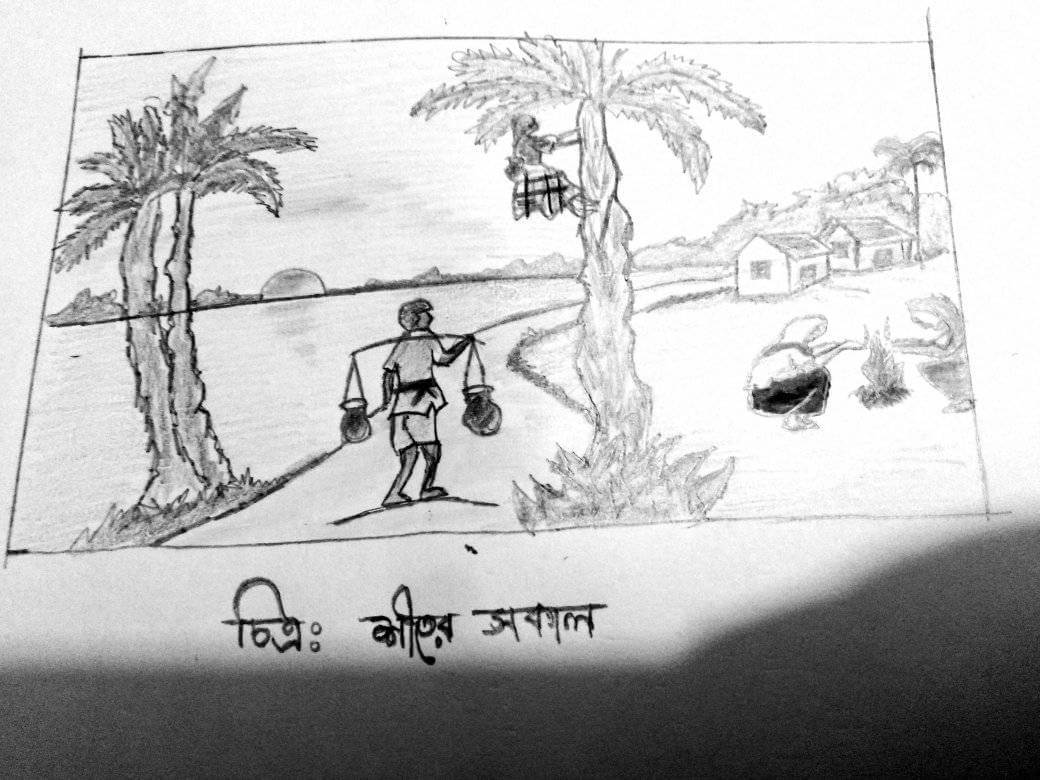 চিত্রঃ শীতের সকাল